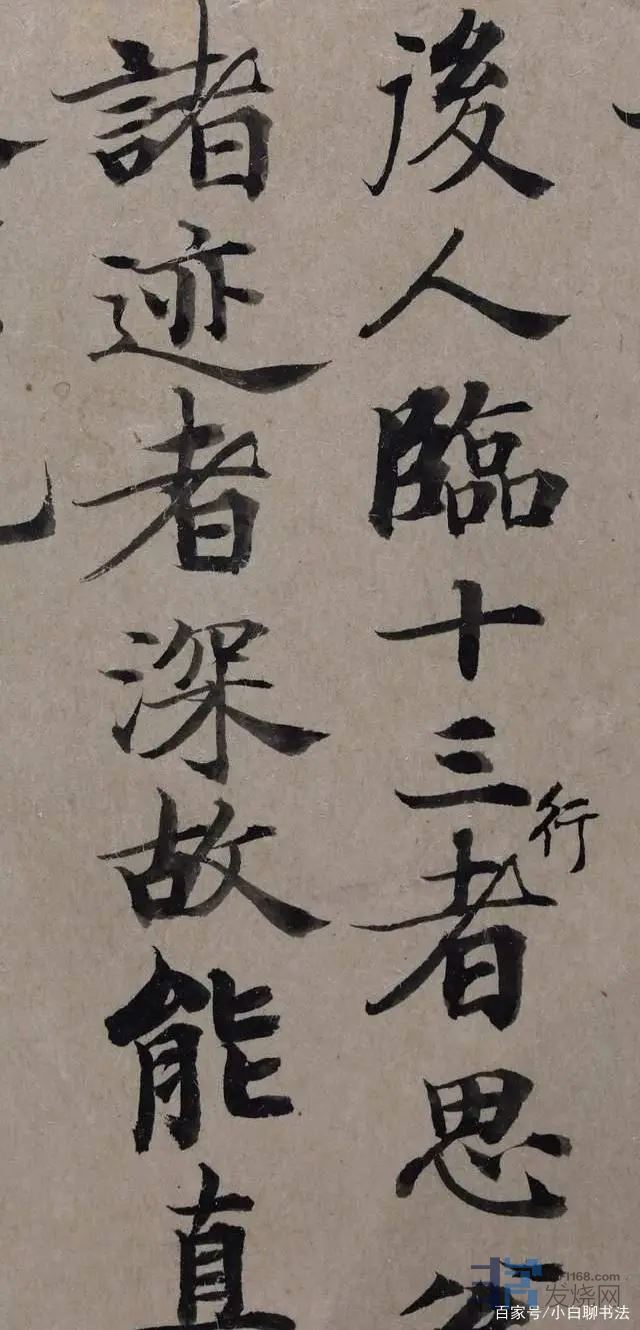 後人臨十三行者思
諸迹者深故能直
發烧网
百家号/小白聊书法